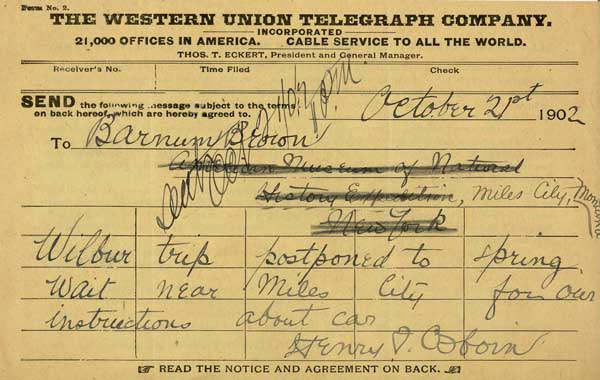 Form No. 2.
THE WESTERN UNION TELEGRAPH COMPANY.
INCORPORATED
21,000 OFFICES IN AMERICA. CABLE SERVICE TO ALL THE WORLD.
THOS. T. ECKERT, President and General Manager.
Receiver's No. Time Filed Check
SEND the following message subject to the terms
on back hereof, which are hereby agreed to.
October 21st 1902
To Barnum Brown
American Museum of Natural
History Expedition, Miles City, Montana
New York
Wilbur trip postponed to spring
Wait near Miles City for our
instructions about car
Henry F. Osborn
READ THE NOTICE AND AGREEMENT ON BACK.